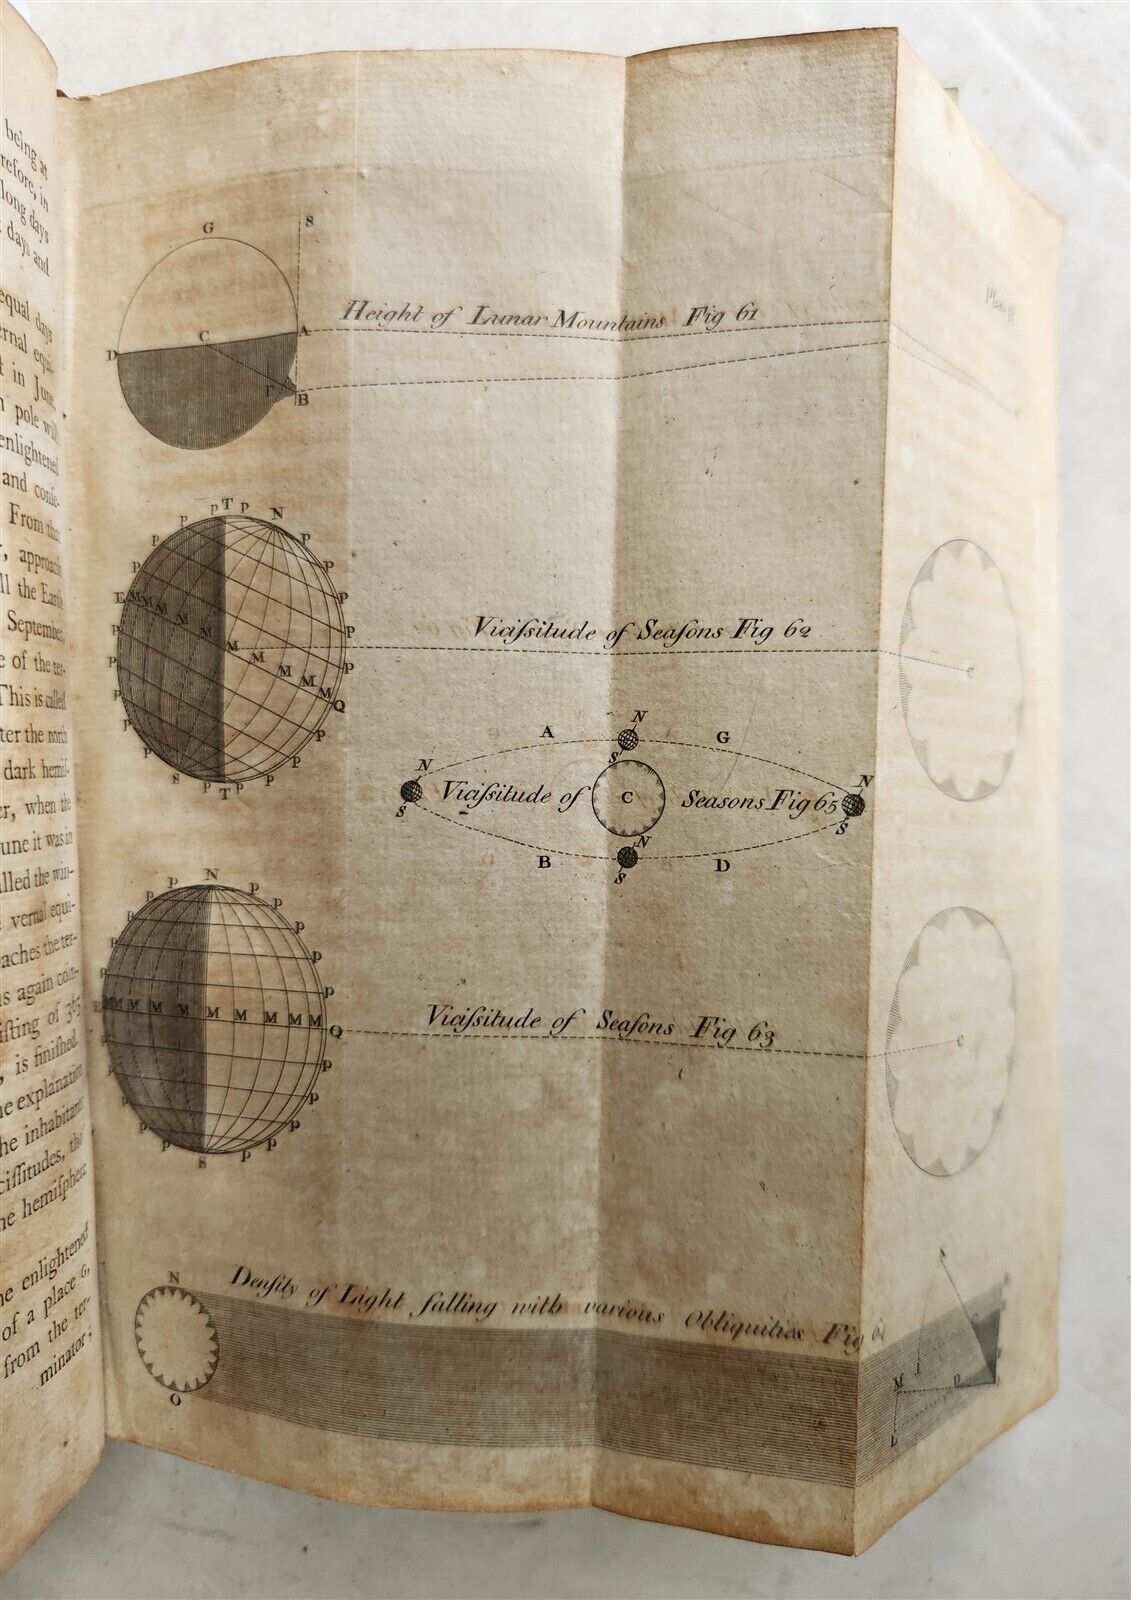 being at
refore, in
long days
days and
equal days
ernal equi-
t in June,
n pole will
enlightened
and conſe-
From that
, approach
ll the Earth
September,
e of the ter-
This is called
ter the north
dark hemiſ-
er, when the
une it was in
lled the win-
vernal equi-
aches the ter-
s again coin-
iſting of 365
, is finiſhed.
ne explanation
he inhabitants
ciſſitudes, the
ne hemiſphere
he enlightened
of a place G,
from the ter-
minator;
G S
Height of Lunar Mountains Fig 61
D C A
F B
P P T P N P P P P P P P P P P P P P P S T P P P
E M M M M M M M M M M Q
Viciſsitude of Seaſons Fig 62
C
N
A G
S
N N
Viciſsitude of C Seasons Fig 65
S S
N
B D
S
P P N P P P P P P P P P P P P P P P S P P P
E M M M M M M M M M Q
Viciſsitude of Seaſons Fig 63
C
Denſity of Light falling with various Obliquities Fig
N
O
C
I
M D
L